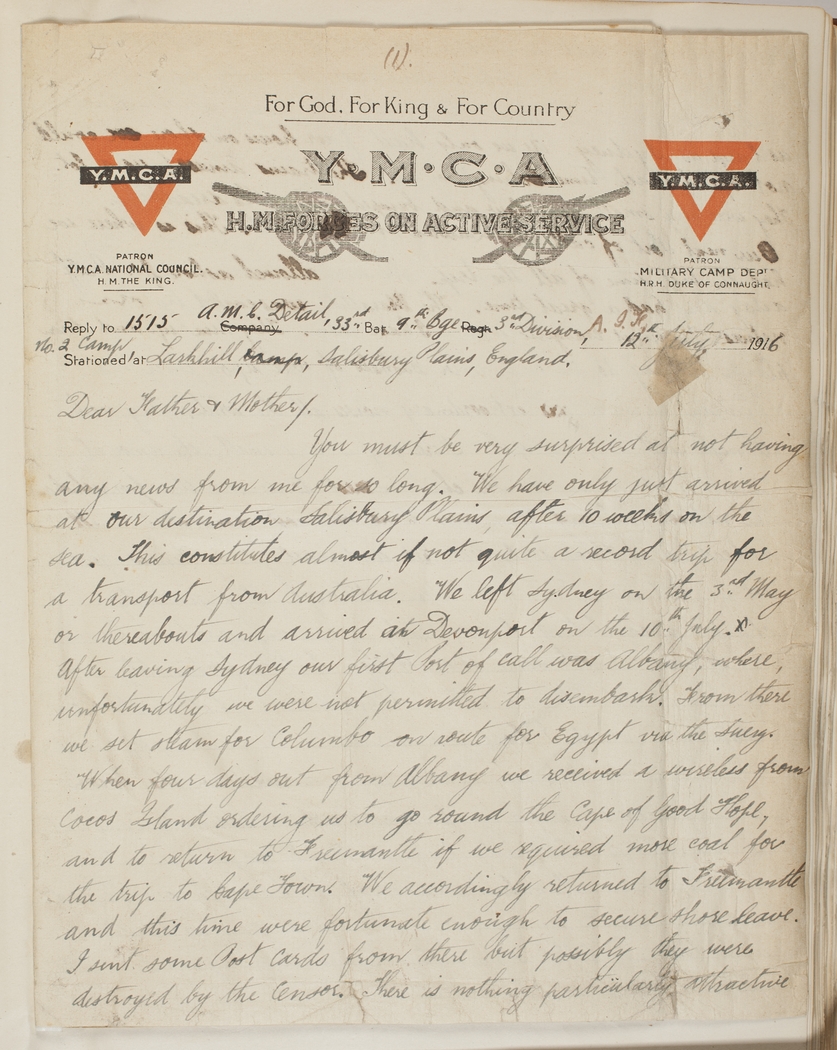 (1).
For God, For King & For Country
Y·M·C·A
Y.M.C.A.
Y.M.C.A.
H.M. FORCES ON ACTIVE SERVICE
PATRON
Y.M.C.A. NATIONAL COUNCIL.
H.M. THE KING.
PATRON
MILITARY CAMP DEPT
H.R.H. DUKE OF CONNAUGHT
Reply to 1515 A.M.C. Detail, Company 33rd Bat. 9th Bge Regt. 3rd Division, A.I.F.
No. 2 Camp 12th July, 1916
Stationed at Larkhill Camp, Salisbury Plains, England.
Dear Father & Mother/.
You must be very surprised at not having
any news from me for so long. We have only just arrived
at our destination Salisbury Plains after 10 weeks on the
sea. This constitutes almost if not quite a record trip for
a transport from Australia. We left Sydney on the 3rd May
or thereabouts and arrived at Devonport on the 10th July. X
After leaving Sydney our first Port of call was Albany, where,
unfortunately we were not permitted to disembark. From there
we set steam for Columbo on route for Egypt via the Suey.
When four days out from Albany we received a wireless from
Cocos Island ordering us to go round the Cape of Good Hope,
and to return to Freemantle if we required more coal for
the trip to Cape Town. We accordingly returned to Freemantle
and this time were fortunate enough to secure shore leave.
I sent some Post Cards from there but possibly they were
destroyed by the Censor. There is nothing particularly attractive